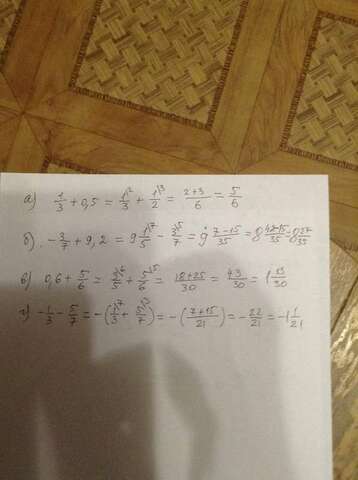 а) 1/3 + 0,5 = 1\2/3 + 1\3/2 = 2+3/6 = 5/6
б) -3/7 + 9,2 = 9 1\7/5 - 3\5/7 = 9 7-15/35 = 8 42-15/35 = 8 27/35
в) 0,6 + 5/6 = 3\6/5 + 5\5/6 = 18+25/30 = 43/30 = 1 13/30
г) -1/3 - 5/7 = -(1\7/3 + 5\3/7) = -(7+15/21) = -22/21 = -1 1/21